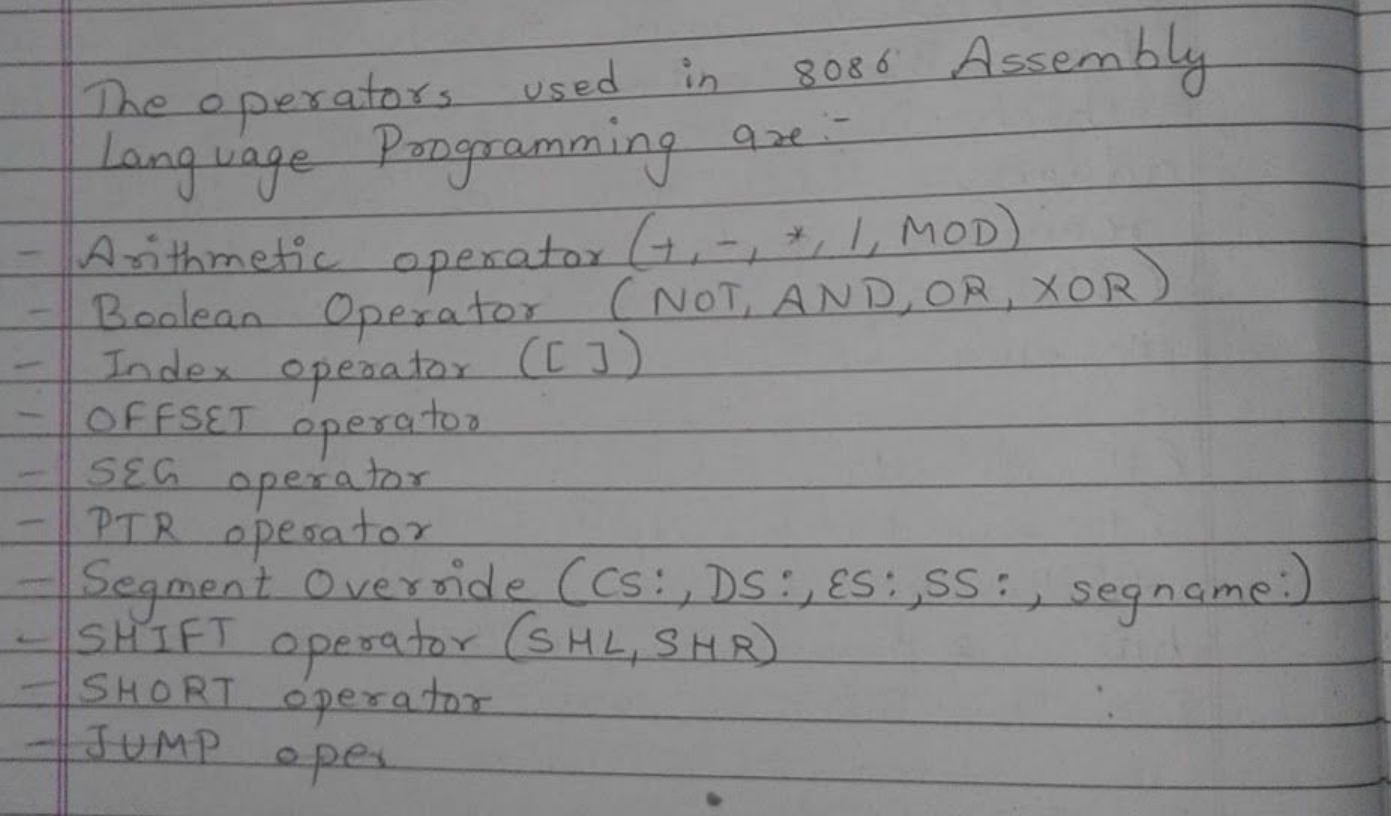 The operators used in 8086 Assembly
Language Programming are:-
- Arithmetic operator (+, -, *, /, MOD)
- Boolean Operator (NOT, AND, OR, XOR)
- Index operator ([ ])
- OFFSET operator
- SEG operator
- PTR operator
- Segment Override (CS:, DS:, ES:, SS:, segname:)
- SHIFT operator (SHL, SHR)
- SHORT operator
- JUMP oper